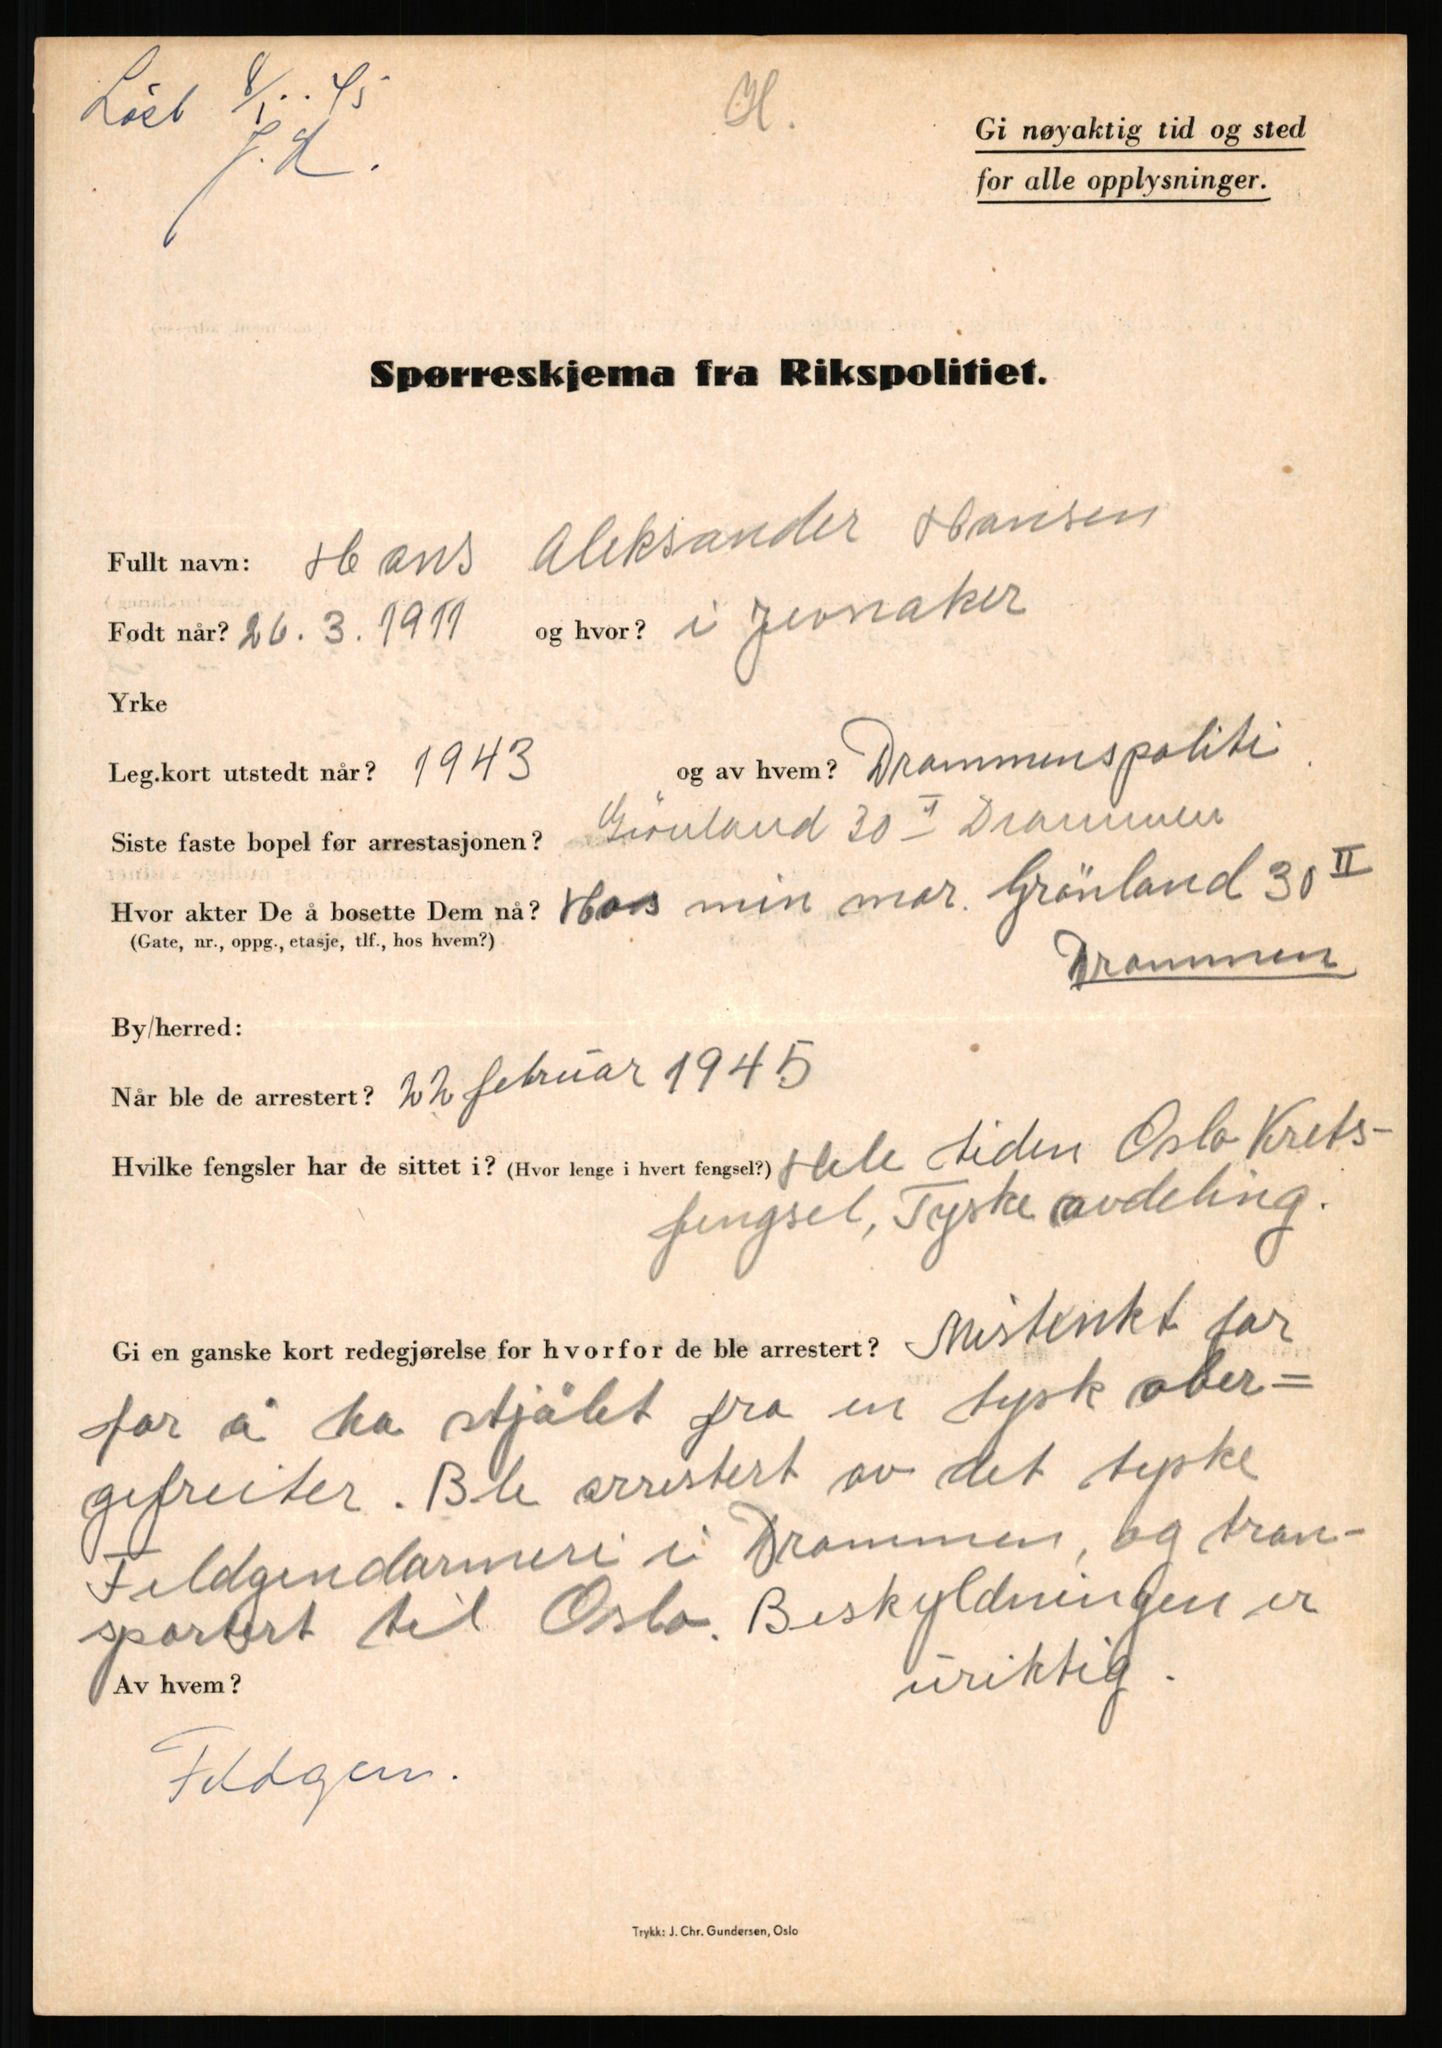 Løsl 8/5.45
J.L.
H.
Gi nøyaktig tid og sted
for alle opplysninger.
Spørreskjema fra Rikspolitiet.
Fullt navn: Hans Aleksander Hansen
Født når? 26.3.1911 og hvor? i Jevnaker
Yrke
Leg.kort utstedt når? 1943 og av hvem? Drammenspoliti
Siste faste bopel før arrestasjonen? Grönland 30 II Drammen
Hvor akter De å bosette Dem nå? Hos min mor. Grönland 30 II
(Gate, nr., oppg., etasje, tlf., hos hvem?)
Drammen
By/herred:
Når ble de arrestert? 22 februar 1945
Hvilke fengsler har de sittet i? (Hvor lenge i hvert fengsel?) Hele tiden Oslo Krets-
fengsel, Tyske avdeling.
Gi en ganske kort redegjørelse for hvorfor de ble arrestert? Mistenkt for
for å ha stjålet fra en tysk ober=
gefreiter. Ble arrestert av det tyske
Feldgendarmeri i Drammen, og tran-
sportert til Oslo. Beskyldningen er
uriktig.
Av hvem?
Feldgen.
Trykk: J. Chr. Gundersen, Oslo